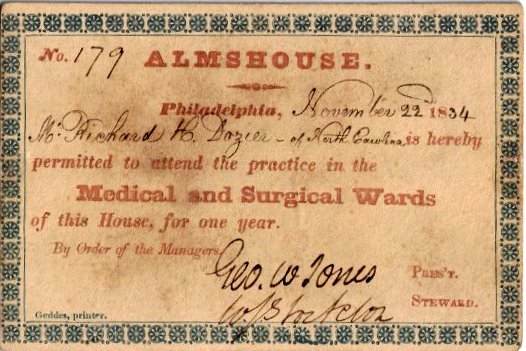 No. 179 ALMSHOUSE.
Philadelphia, November 22 1834
Mr. Richard H. Dozier - of North Carolina is hereby
permitted to attend the practice in the
Medical and Surgical Wards
of this House, for one year.
By Order of the Managers.
Geo. W Jones PRES'T.
Wm Stockton STEWARD.
Geddes, printer.